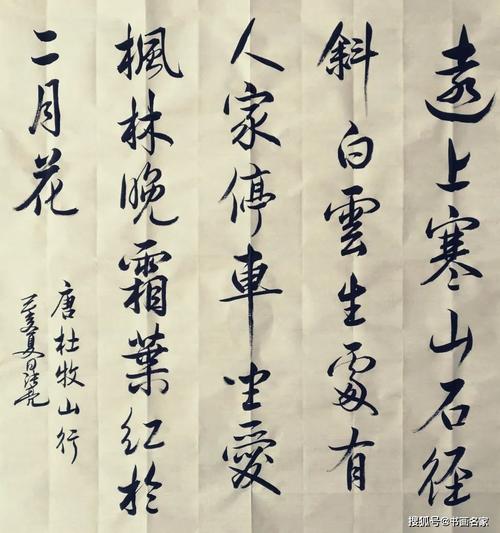 遠上寒山石徑
斜白雲生處有
人家停車坐愛
楓林晚霜葉紅於
二月花
唐杜牧山行
己亥夏日
搜狐号@书画名家